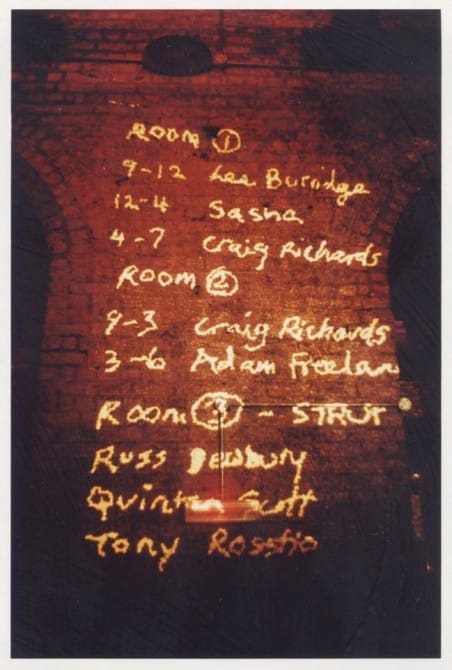 Room ①
9-12 Lee Burridge
12-4 Sasha
4-7 Craig Richards
Room ②
9-3 Craig Richards
3-6 Adam Freelan
Room ③ - STRUT
Russ Dewbury
Quinton Scott
Tony